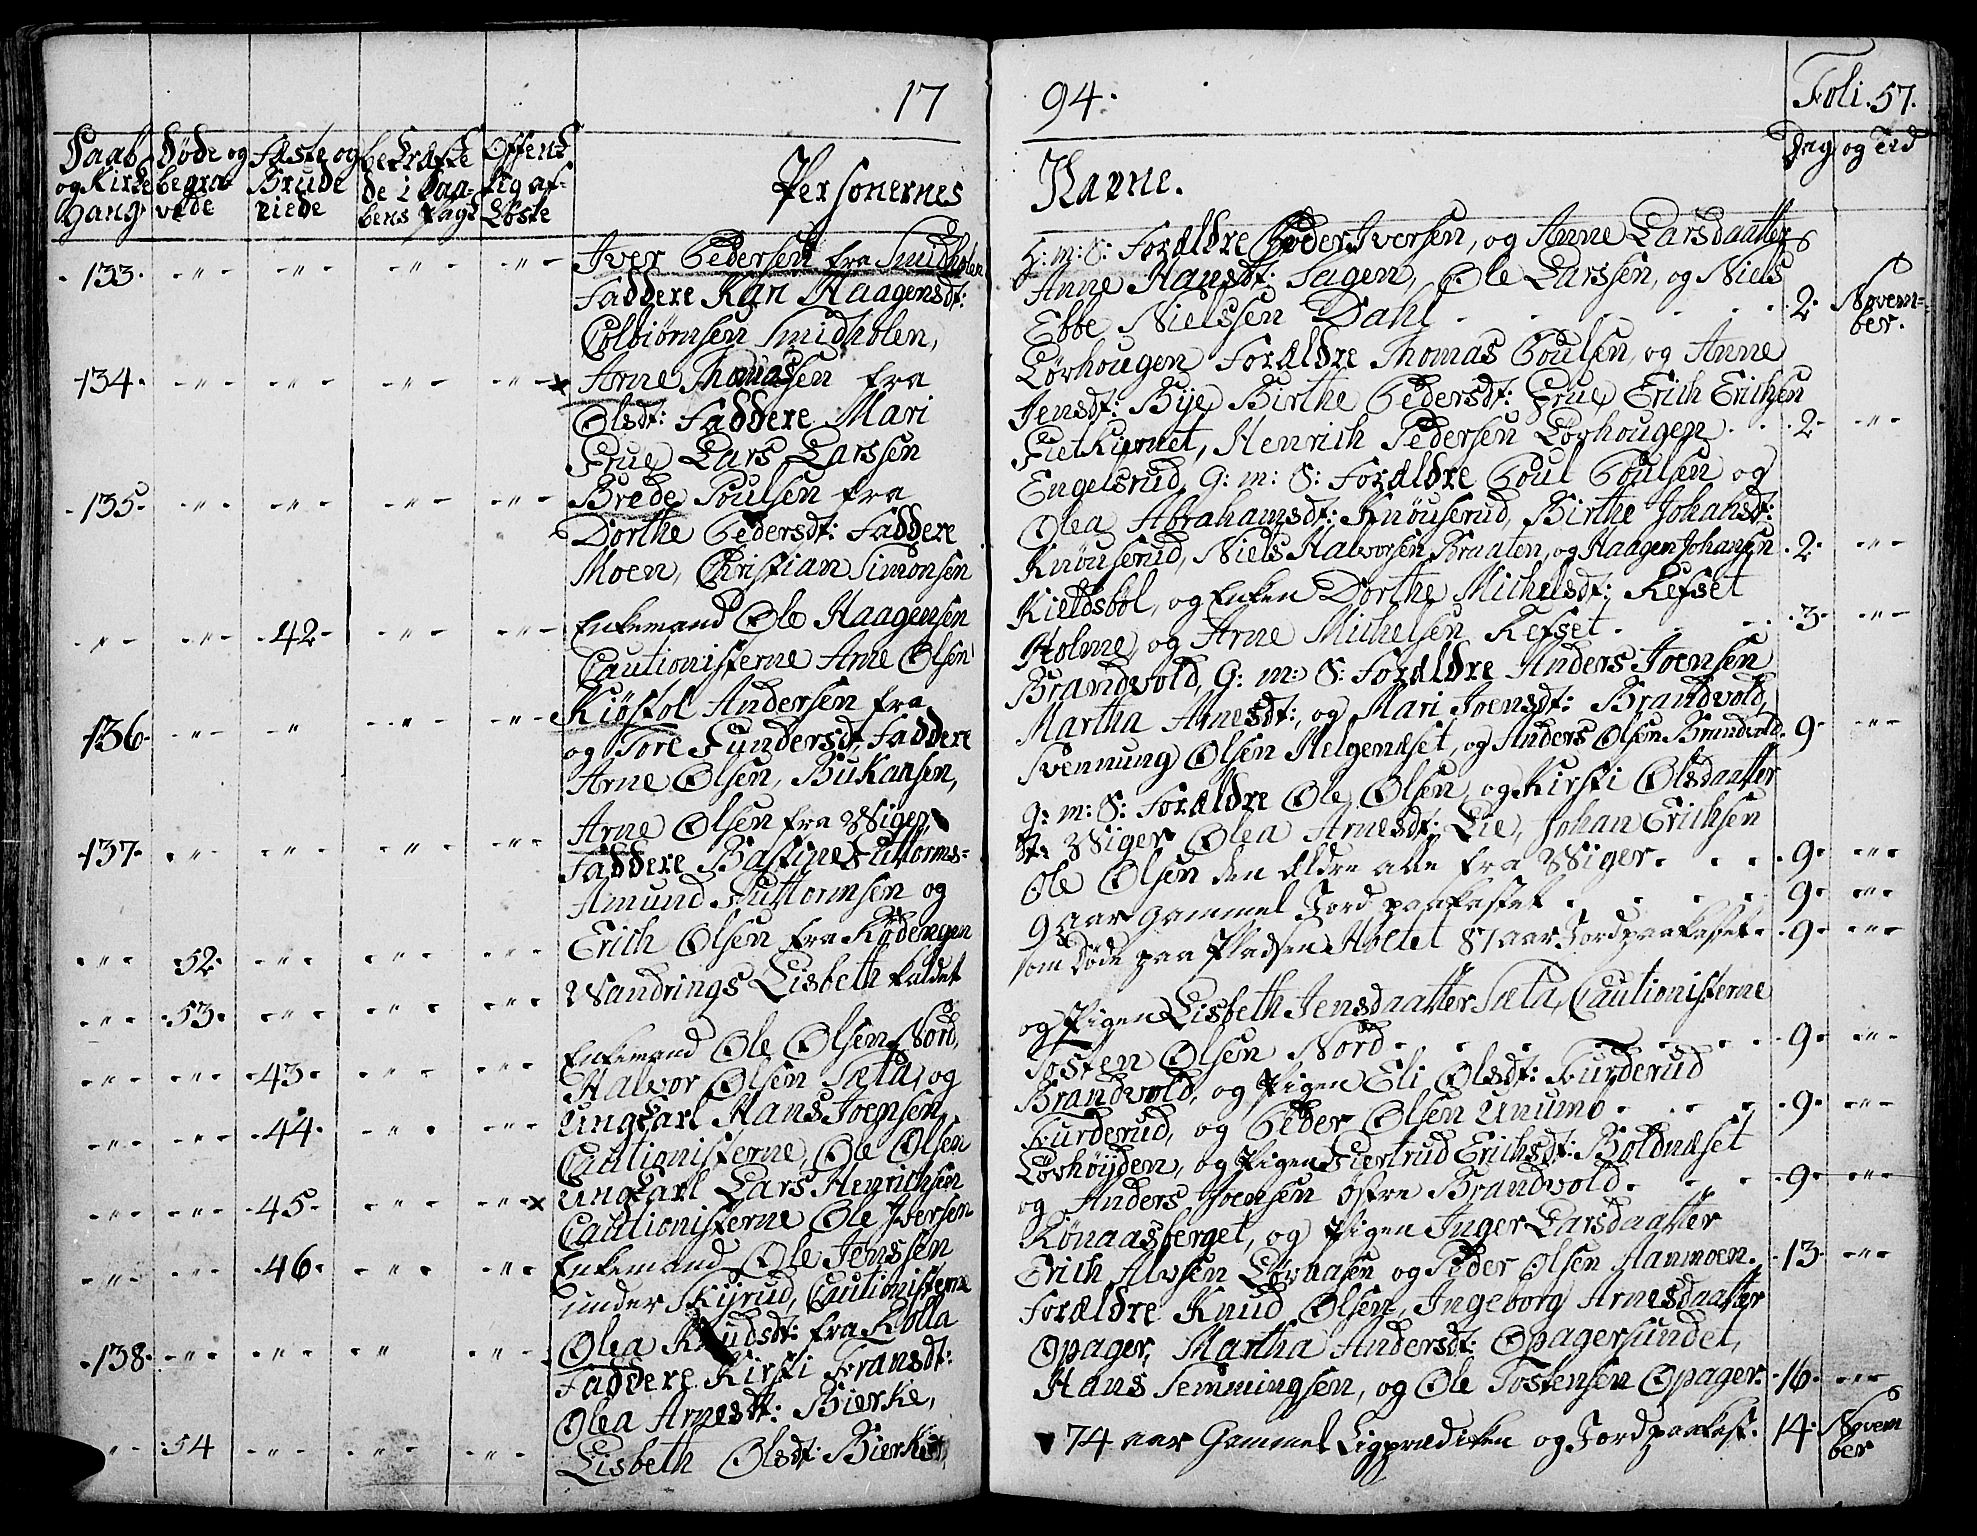 17 94. Foli. 57.
Daab og Kirke Gang. Døde og begravede Fæste og Brude viede bekræftede i Daabens Pagt Offentlig af Løste Personernes Navne. Dag og Tid
133. Iver Pedersen fra Smidholen H: m: S: Forældre Peder Iversen, og Anne Larsdaatter
Faddere Kari Haagensdt: Anne Hansdt: Hagen, Ole Larssen, og Niels
Colbiørnsen Smidholen, Ebbe Nielssen Dahl 2. November.
134. x Arne Thomassen fra Lövhougen Forældre Thomas Poulsen, og Anne
Olsdt: Faddere Mari Jensdt: Bye, Birthe Pedersdt: Frue, Erich Erichsen
Frue, Lars Larssen Henrich Pedersen Lövhougen 2
135. Brede Poulsen fra Engelsrud, G: m: S: Forældre Poul Poulsen og
Dorthe Pedersdt: Faddere Olea Abrahamsdt: Knöuserud, Birthe Johansdt:
Moen, Christian Simonsen Knöuserud, Niels Halvorsen Braaten, og Haagen Johansen 2.
42 Enkemand Ole Haagensen Kieldsböl, og Enken Dorthe Michelsdt: Refset
Cautionisterne Arne Olsen Holme, og Arne Michelsen Refset. 3.
136. Kiöstol Andersen fra Brandvold, G: m: S: Forældre Anders Joensen
og Tore Gundersdt, Faddere Martha Arnesdt:, og Mari Joensdt: Brandvold,
Arne Olsen, Bukaasen, Svennung Olsen Helgenæset, og Anders Olsen Brandvold. 9
137. Arne Olsen fra Wiger, G: m: S: Forældre Ole Olsen, og Kirsti Olsdaatter
Faddere Bastine Guttorms= dt: Wiger Olea Arnesdt: Lie, Johan Erichsen
Amund Guttormsen og Ole Olsen den ældre alle fra Wiger. 9
52. Erich Olsen fra Rödengen 9 aar gammel Jord paakastet 9
53. Wandrings Lisbeth kaldet som döde paa Pladsen Holtet 87 aar Jord paakastet 9
43. Enkemand Ole Olsen Nord, og Pigen Lisbeth Jensdaatter Sæta, Cautionisterne
Halvor Olsen Sæta, og Tosten Olsen Nord 9
44. Ungkarl Hans Joensen Brandvold, og Pigen Eli Olsdt: Furderud
Cautionisterne, Ole Olsen Furderud, og Peder Olsen Unumo 9
45. x Ungkarl Lars Henrichsen Lövhöyden, og Pigen Giertrud Erichsdt: Boldnæset
Cautionisterne Ole Iversen og Anders Joensen östre Brandvold 9
46. Enkemand Ole Jenssen Rönaasberget, og Pigen Inger Larsdaatter
under Skyrud, Cautionisterne Erich Alvsen Lövaasen og Peder Olsen Aanmoen. 13
138. Olea Knudsdt: fra Kolla Forældre Knud Olsen, Ingeborg Arnesdaatter
Faddere Kirsti Fransdt: Opager, Martha Andersdt: Opagersundet,
Olea Arnesdt: Bierke, Hans Semmingsen, og Ole Tostensen Opager. 16
54 Lisbeth Olsdt: Bierke, 74 aar Gammel Ligprædiken og Jord paakast. 14. November